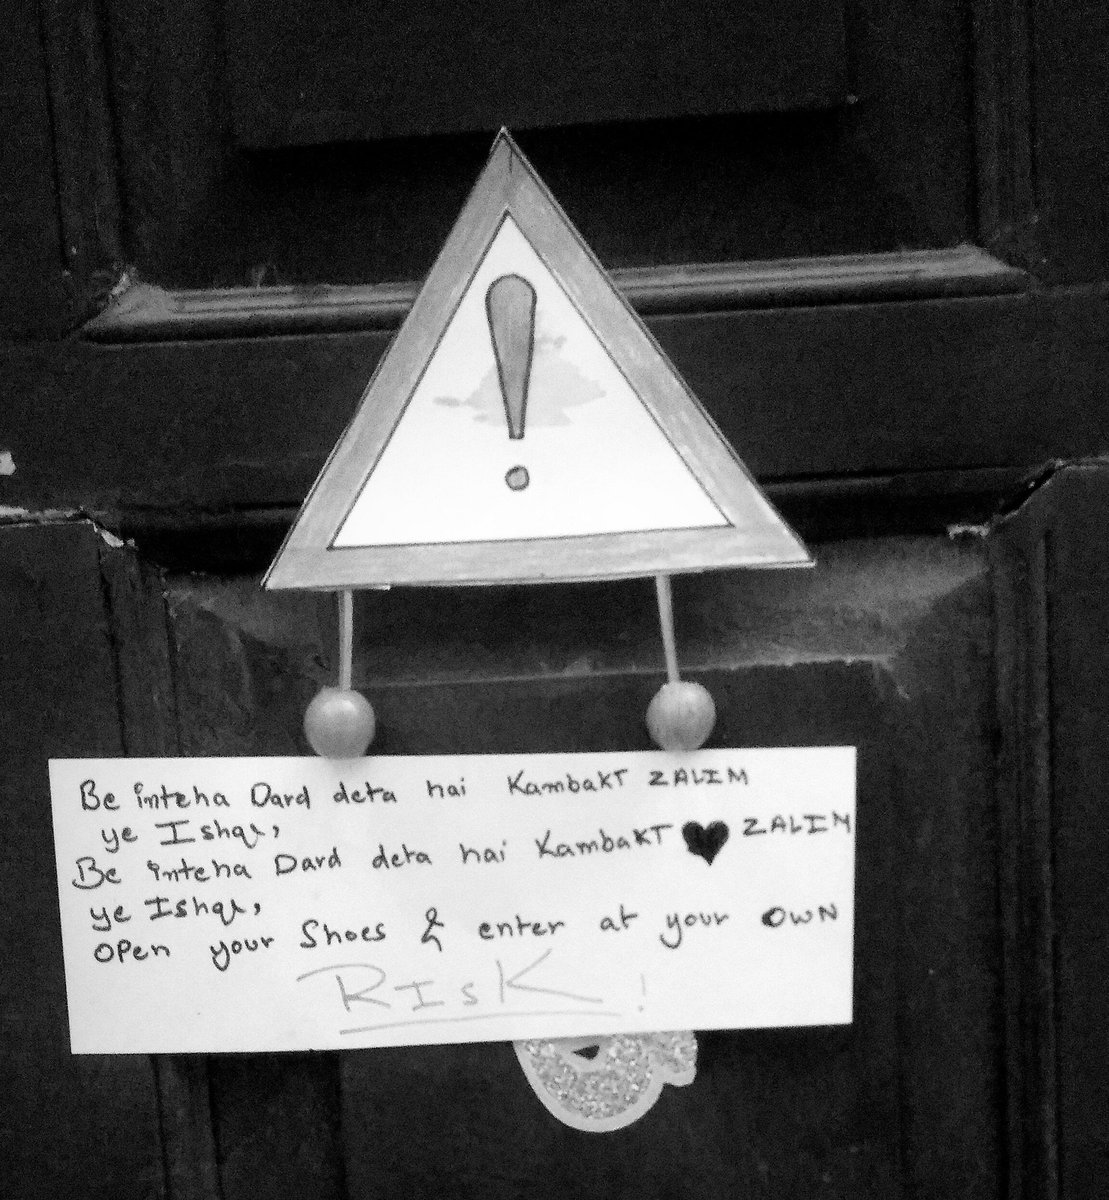 !
Be inteha Dard deta hai Kambakt ZALIM
ye Ishq,
Be inteha Dard deta hai KambaKT ♥ ZALIM
ye Ishq,
OPen your Shoes & enter at your OWN
RISK!